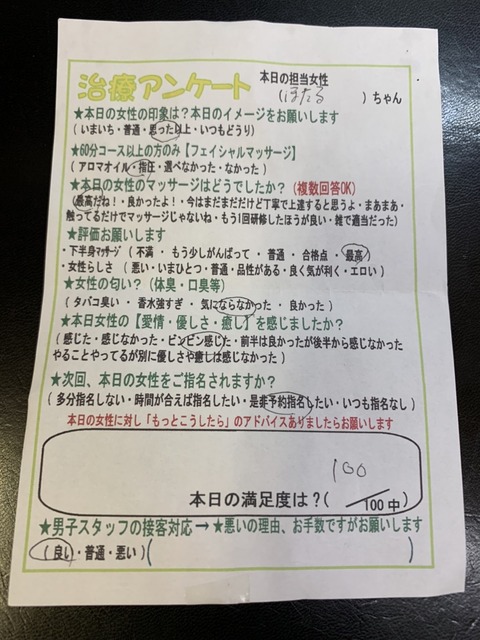 治療アンケート 本日の担当女性
( ほたる )ちゃん
★本日の女性の印象は?本日のイメージをお願いします
( いまいち・普通・思った以上・いつもどうり)
★60分コース以上の方のみ【フェイシャルマッサージ】
( アロマオイル・指圧・選べなかった・なかった )
★本日の女性のマッサージはどうでしたか? (複数回答OK)
(最高だね!・良かったよ!・今はまだまだけど丁寧で上達すると思うよ・まあまあ・
触ってるだけでマッサージじゃないね・もう1回研修したほうが良い・雑で適当だった)
★評価お願いします
・下半身マッサージ ( 不満 ・ もう少しがんばって ・ 普通 ・ 合格点 ・ 最高 )
・女性らしさ ( 悪い・いまひとつ・普通・品性がある・良く気が利く・エロい )
★女性の匂い? (体臭・口臭等)
( タバコ臭い ・ 香水強すぎ ・ 気にならなかった ・ 良かった )
★本日女性の【愛情・優しさ・癒し】を感じましたか?
( 感じた・感じなかった・ビンビン感じた・前半は良かったが後半から感じなかった
やることやってるが別に優しさや癒しは感じなかった )
★次回、本日の女性をご指名されますか?
( 多分指名しない・時間が合えば指名したい・是非予約指名したい・いつも指名なし )
本日の女性に対し「もっとこうしたら」のアドバイスありましたらお願いします
100
本日の満足度は? ( / 100 中 )
★男子スタッフの接客対応 → ★悪いの理由、お手数ですがお願いします
( 良い・普通・悪い ) ( )